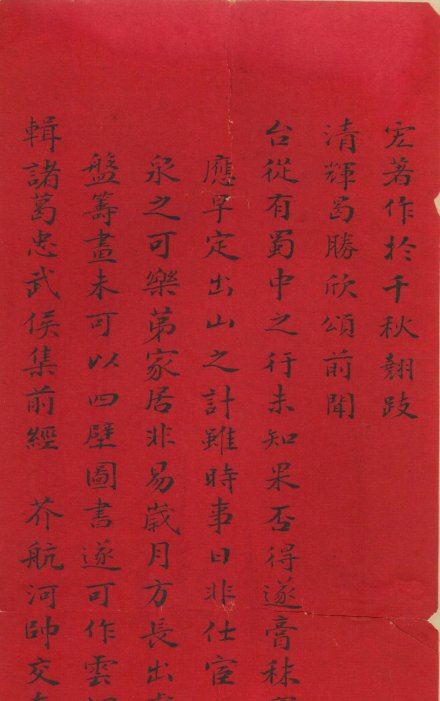 宏著作於千秋翹跂
清輝曷勝欣頌前聞
台從有蜀中之行未知果否得遂膏秣
應早定出山之計雖時事日非仕宦
泉之可樂第家居非易歲月方長出
盤籌畫未可以四壁圖書遂可作雲
輯諸葛忠武侯集前經 芥航河帥交